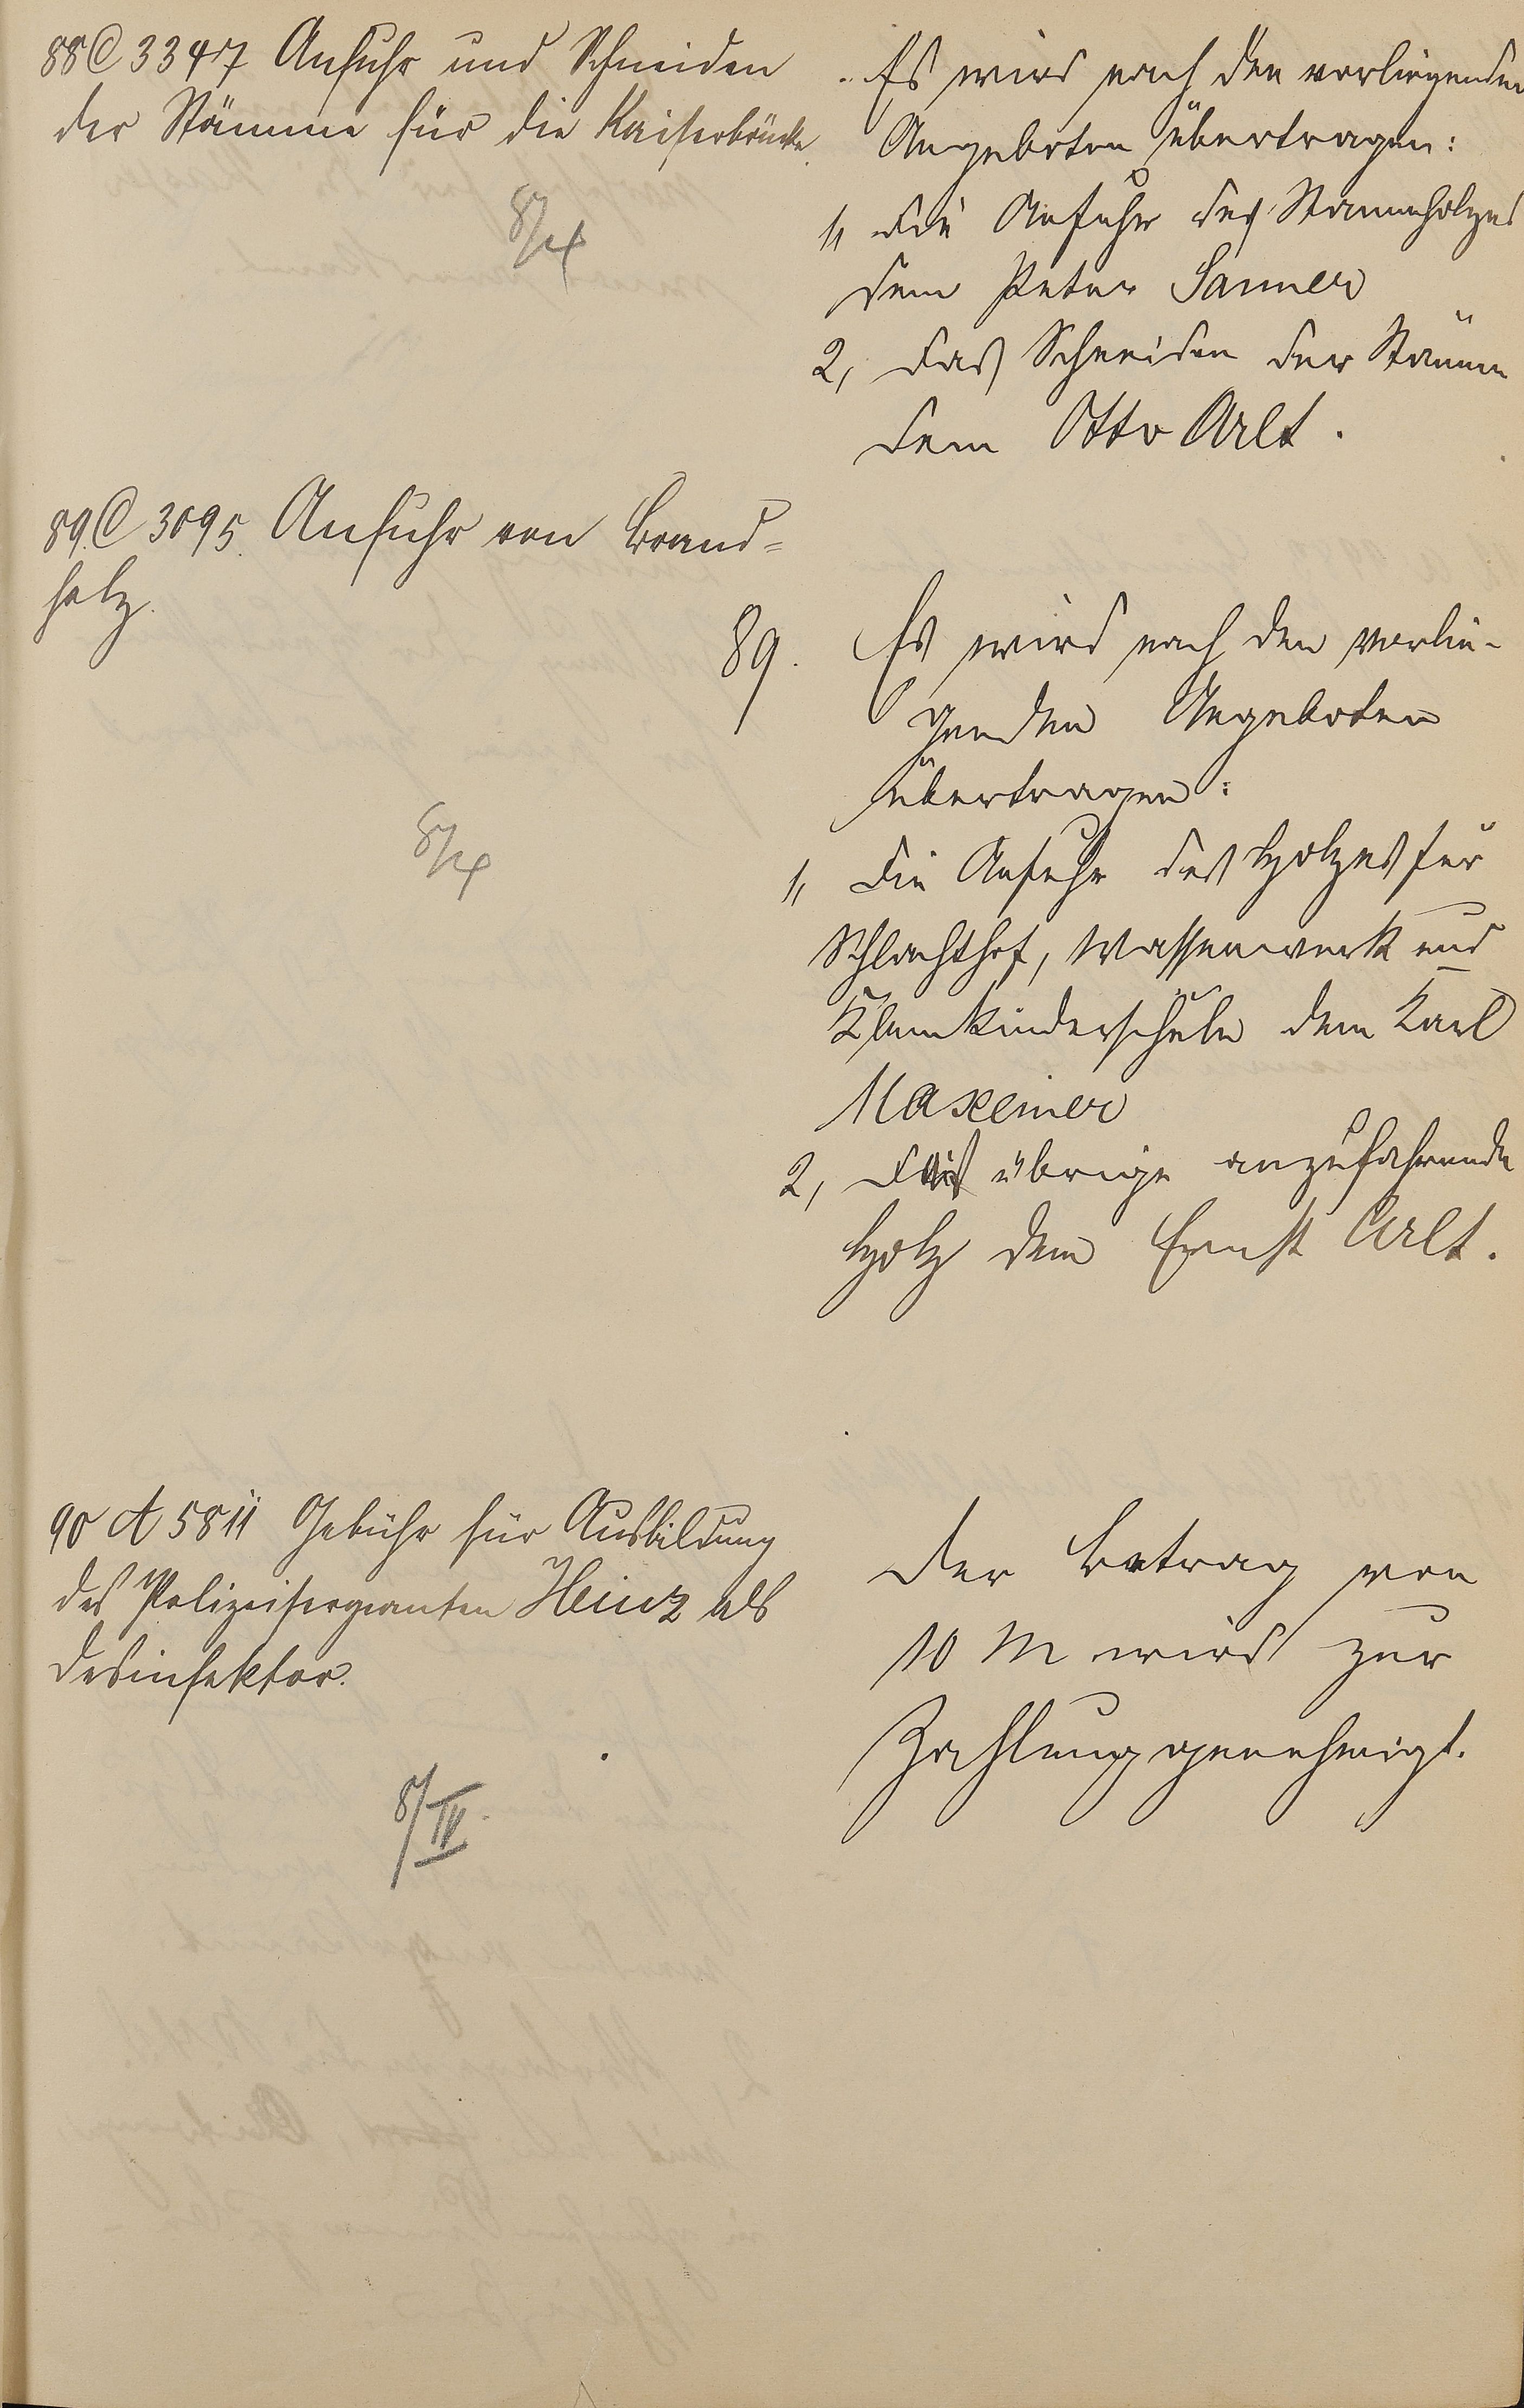 88 C 3347 Anfuhr und Schneiden
der Stämme für die Kaiserbrücke.
8/4
Es wird nach den vorliegenden
Angeboten übertragen:
1, die Anfuhr des Stammholzes
dem Peter Sanner
2, das Schneiden der Stämme
dem Otto Arlt.
89. C 3095. Anfuhr von Brand=
holz.
8/4
89. Es wird nach den vorlie-
genden Angeboten
übertragen:
1, die Anfuhr des Holzes für
Schlachthof, Wasserwerk und
Kleinkinderschule dem Karl
Maxeiner
2, das übrige anzufahrende
Holz dem Ernst Arlt.
90 A 5811 Gebühr für Ausbildung
des Polizeisergeanten Heinz als
Desinfektor.
8/IV.
Der Betrag von
10 M wird zur
Zahlung genehmigt.